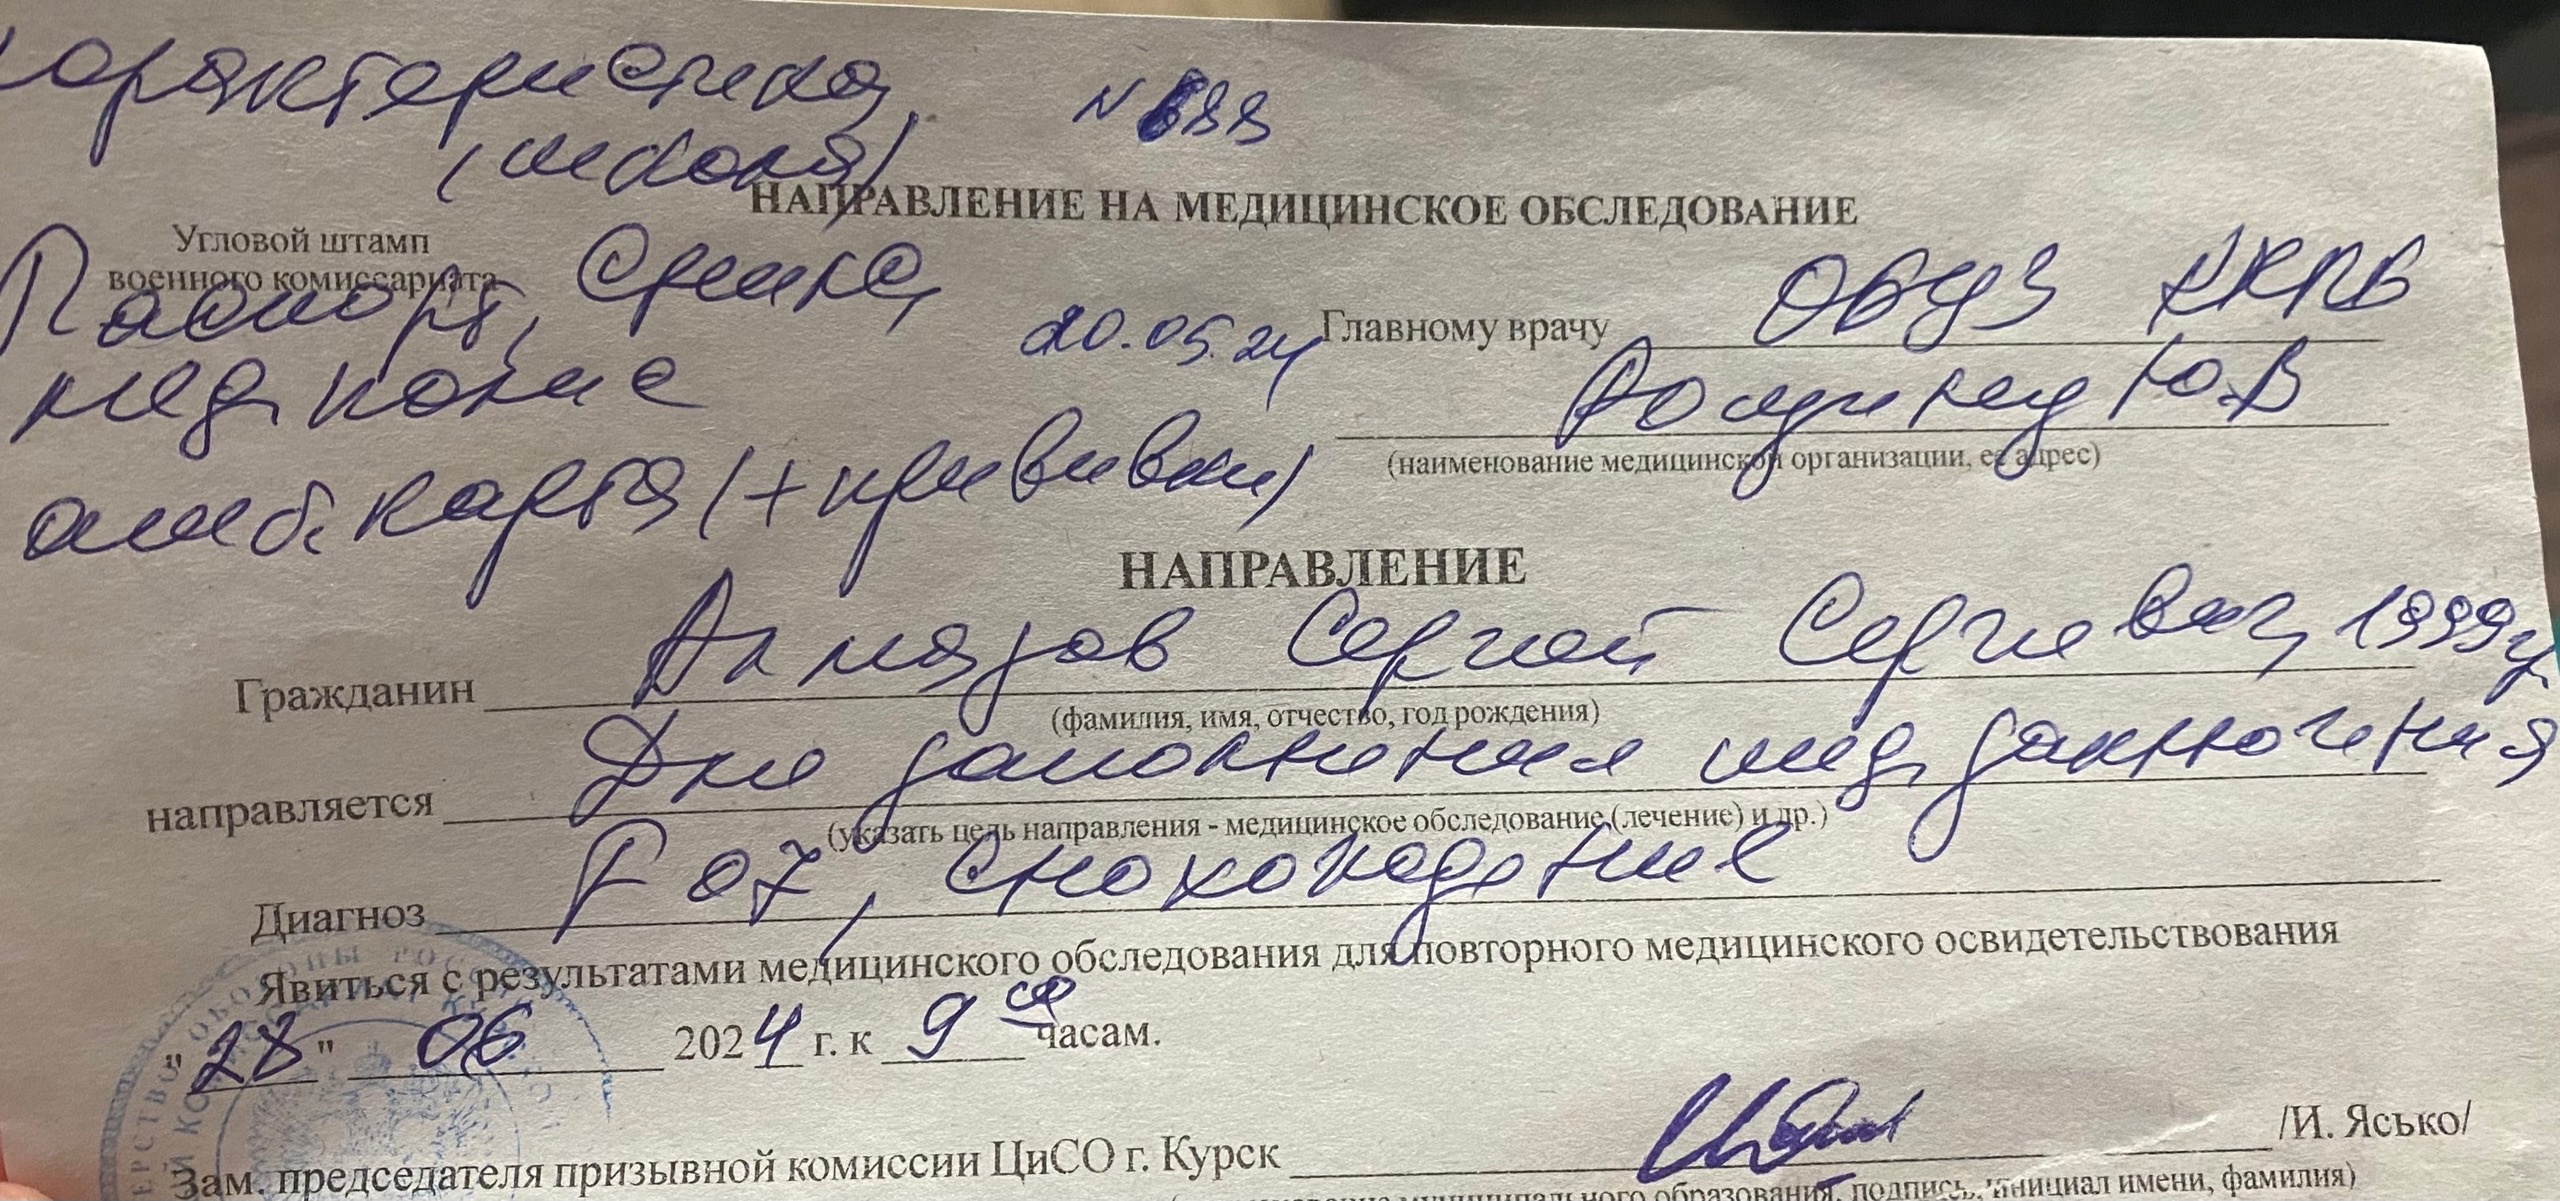 характеристика
(школа)
N 688
НАПРАВЛЕНИЕ НА МЕДИЦИНСКОЕ ОБСЛЕДОВАНИЕ
Угловой штамп
военного комиссариата
Паспорт,
20.05.24
Главному врачу ОБУЗ ККПБ
Ю.В
(наименование медицинской организации, ее адрес)
мед,
амб. карта (+ прививки)
НАПРАВЛЕНИЕ
Гражданин Алмазов Сергей Сергеевич, 1999г
(фамилия, имя, отчество, год рождения)
направляется Для заполнения мед, заключения
(указать цель направления - медицинское обследование,(лечение) и др.)
Диагноз F 07, снохождение
Явиться с результатами медицинского обследования для повторного медицинского освидетельствования
"28" 06 2024 г. к 9 00 часам.
Зам. председателя призывной комиссии ЦиСО г. Курск /И. Ясько/
образования, подпись, инициал имени, фамилия)